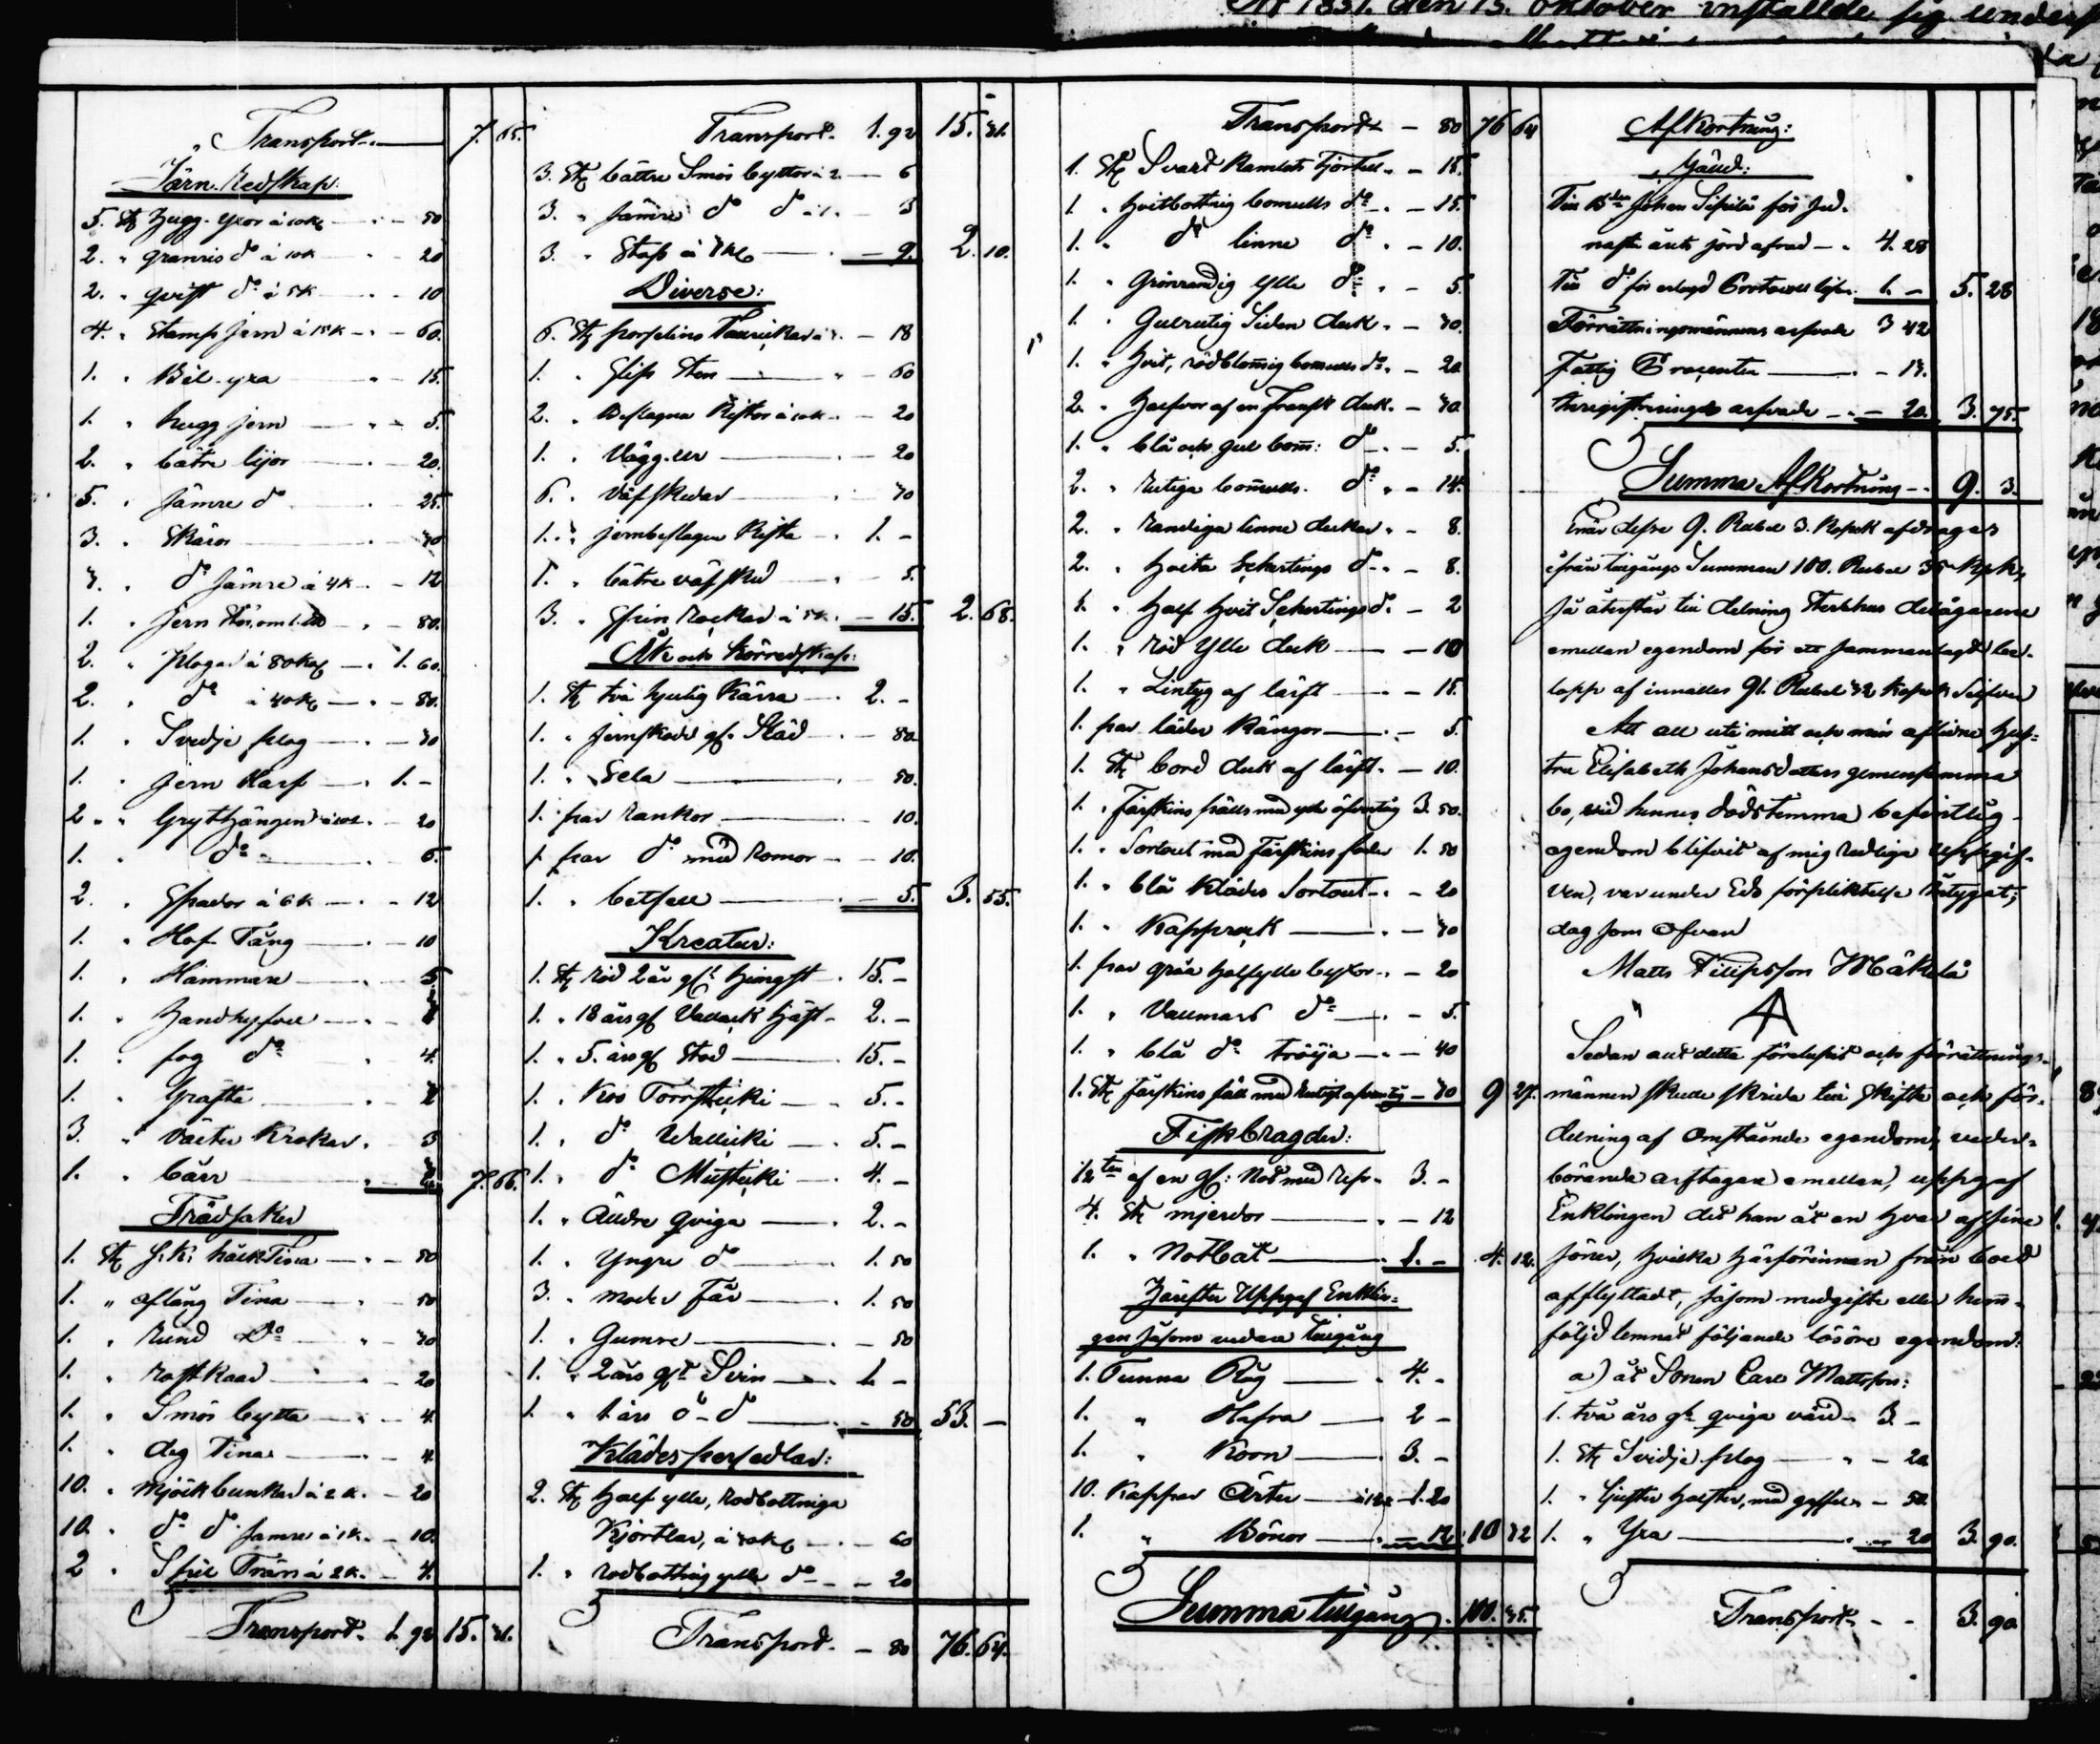 År 1851. den 13. oktober instället sig
Transport. 7. 65.
Järn Redskap:
5. St. hugg yxor à 10 K. - 50
2. " granris do à 10 K - 20
2. " qvist do à 5 K - 10
4. " Stamp jern à 15 K - 60.
1. " Bil yxa - 15.
1. " hugg jern - 5.
2. " bätre lijor - 20.
5. " sämre do - 25.
3. " Skäror - 30
3. " do sämre à 4 K. - 12
1. " Jern Stör, om - 80.
2. " plogar à 80 Kop. 1. 60.
2. " do à 40 K. - 80.
1. " Svedje plog - 30
1. " Jern Harf 1. -
2. " Grythängen - 20
1. " do - 6.
2. " Spador à 6 K - 12
1. " Hof Tång - 10
1. " Hammare - 5
1. " Handhyfvel
1. " fog do 4.
1. " Gräfta
3. " Väster Krokar. 3
1. " bärr 7. 66.
Trädsaker
1. St. hälk Tina - 50
1. " aflång Tina - 50
1. " Rund do - 30
1. " Rostkaar - 20
1. " Smör bytta - 4.
1. " deg Tina - 4
10. " Mjölkbunkar à 2 K. - 20
10. " do do samre à 1 K. - 10.
2 " à 2 K. - 4.
Transport. 1. 92 15. 31.
Transport. 1. 92 15. 31.
3. St. bättre Smör byttor à 2. - 6
3. " sämre do do à 1. - 3
3. " à 3 K. - 9. 2. 10.
Diverse:
6. St. porslins Tallrickar à 3. - 18
1. " Slip Sten - 60
2. " Beslagna Kistor à 10 K. - 20
1. " Vägg-ur - 20
6. " väfskedar - 30
1. " jernbeslagen Kista 1. -
1. " bätre väfsked - 5.
3. " Spin Rockar à 5 K. - 15. 2. 68.
Åk och Körredskap:
1. St. två hjulig Kärra 2. -
1. " jernskodd gl. Släd - 80
1. " Sela - 50.
1. par Rankor - 10.
1. par do med Romor - 10.
1. " betsell - 5. 3. 55.
Kreatur:
1. St. Röd 2 år gl. hingst 15. -
1. " 18 års gl Vallack häst 2. -
1. " 5. års gl Stod 15. -
1. " Koo Torrsticki 5. -
1. " do Wallicki 5. -
1. " do Musticki 4. -
1. " Äldre qviga 2. -
1. " Yngre do 1. 50
3. " moder Får 1. 50
1. " Gumse - 50
1. " 2 års gl. Svin 1. -
1. " 1 års do do - 50 53. -
Klädespersedlar:
2. St. half ylle, rodbottniga
Kjortlar, à 30 K. - 60
1. " rodbottnig ylle do - 20
Transport. - 80 76. 64.
Transport - 80 76 64
1. St. Svart Kamlots kjortel. - 15.
1. " hvitbottnig bomulls do - 15.
1. " do linne do - 10.
1. " Grönrandig ylle do - 5.
1. " Gulrutig Siden duk. - 30.
1. " hvit, rödblomig bomulls do - 20.
2. " Halfvor af en Fransk duk. - 30
1. " blå och gul bom: do - 5.
2. " Rutiga bomulls. do - 14.
2. " Randiga linne dukar. - 8.
2. " hvita Schertings do - 8.
1. " half hvit Schertings do. - 2
1. " röd ylle duk - 10
1. " Lintyg af lärft - 15.
1. par läder Kängor - 5.
1. St. bord duk af lärft. - 10.
1. " Fårskins fälls med ylle öfvertåg 3. 50.
1. " Sortout med Fårskins foder 1. 50
1. " blå Klädes Sortout - 20
1. " Kapprock - 30
1. par gråa halfylle byxor - 20
1. " Vallmars do - 5.
1. " blå do tröija - 40
1. St. fårskins fäll med - 30 9 27.
Fiskbragder:
12ten af en gl: Not med Rep. 3. -
4. St. mjerdor - 12
1. " Notbåt 1. - 4. 12.
Härefter Uppgaf Enklin-
gen såsom vidare tillgång
1. Tunna Råg 4. -
1. " Hafra 2 -
1. " Korn 3. -
10. Kappar Ärter à 12 1. 20
1. " Bönor - 12 10 32
Summa tillgång. 100. 35.
Afkortning:
Gäld:
Till Bden Johan Sipilä för Ind.
nasti års jordafrad 4. 28
Till do för erlagd Protocoll 1. - 5. 28
Förrättningsmännens arfvode 3 42
Fattig Procenter - 13.
Inregistrerings arfvode - 20. 3. 75.
Summa Afkortning 9. 3.
Enär desse 9. Rubel 3. Kopek afdrages
ifrån tillgångs Summan 100. Rubel 35 Kpk,
så återstår till delning Sterbhus delägarene
emellan egendom för ett sammanlagdt be-
lopp af innalles 91. Rubel 32 Kopek Silfver
Att all uti mitt och min aflidne hus-
tru Elisabeth Johansdotters gemensamma
bo, vid hennes dödstimma befintlig
egendom blifvit af mig redligen uppgif-
ven, varder under Eds förpliktelse betygat;
dag som ofvan
Matts Filipsson Mäkelä
Sedan allt detta föreluppit och förrättnings-
männen skulle skrida till skifte och för-
delning af omstående egendom veder-
börande arftagare emellan, uppgaf
Enklingen det han åt en hvar af sine
söner, hvilka härförinnan från boed
afflyttadt, såsom medgifte eller hem-
följd lemnat följande lösöre egendom:
a) åt Sonen Carl Mattsson:
1. två års gl qviga värd 3. -
1. St. Svidje plog - 20
1. " halster, med gaffel - 50.
1. " Yxa - 20 3. 90.
Transport 3. 90